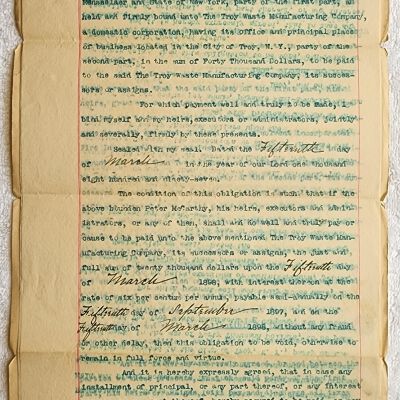 Rensselaer and State of New York, party of the first part, am
held and firmly bound unto The Troy Waste Manufacturing Company,
a domestic corporation, having its office and principal place
of business located in the City of Troy, N.Y., party of the
second part, in the sum of Forty Thousand Dollars, to be paid
to the said The Troy Waste Manufacturing Company, its succes-
sors or assigns.
For which payment well and truly to be made, I
bind myself and my heirs, executors or administrators, jointly
and severally, firmly by these presents.
Sealed with my seal. Dated the Fifteenth day
of March in the year of our Lord one thousand
eight hundred and ninety-seven.
The condition of this obligation is such that if the
above bounden Peter McCarthy, his heirs, executors and admin-
istrators, or any of them, shall and do well and truly pay or
cause to be paid unto the above mentioned The Troy Waste Man-
ufacturing Company, its successors or assigns, the just and
full sum of twenty thousand dollars upon the Fifteenth day
of March 1898, with interest thereon at the
rate of six per centum per annum, payable semi-annually on the
Fifteenth day of September 1897, and on the
Fifteenth day of March 1898, without any fraud
or other delay, then this obligation to be void, otherwise to
remain in full force and virtue.
And it is hereby expressly agreed, that in case any
installment of principal, or any part thereof, or any interest